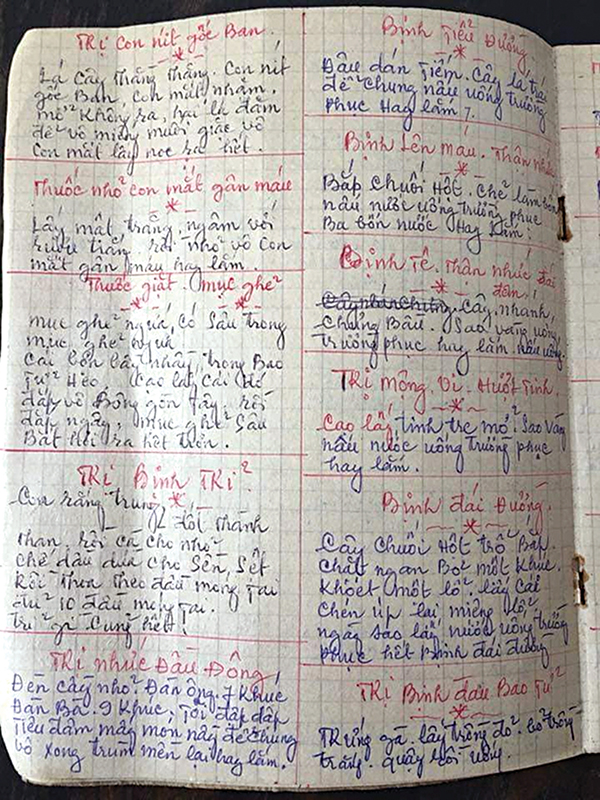 Trị Con nít gốc Ban.
Lá cây thằng thằng. Con nít
gốc Ban, con mắt nhắm.
mở Không ra, hái lá đâm
để vô miếng mười giác vô
Con mắt lấy nọc ra hết.
Thuốc nhỏ con mắt gân máu
Lấy mật, trắng, ngâm với
rượu trắng, rồi nhỏ vô Con
mắt gân máu hay lắm.
Thuốc giật mục ghẻ
mục ghẻ ngứa, có Sâu trong
mục ghẻ
Cái bờn lầy nhầy, trong Bao
Tử Heo. Cạo lấy Cái đó
đắp vô Bông gòn Tây, rồi
đắp ngay, mục ghẻ Sâu
Bắt hơi ra hết trơn.
Trị Bịnh Trĩ
Con rắng trung, đốt thành
than, rồi cà cho nhỏ
chế dầu dừa cho Sền, Sệt
Rồi Thoa theo đầu móng Tai
đủ 10 đầu móng Tai.
trĩ gì Cũng hết!
Trị nhức Đầu Đông,
Đàn ông. 7 Khúc
Đàn Bà. 9 Khúc, Tỏi đập dập
Tiêu đâm mấy món này để Chung
vô xông trùm mền lại hay lắm.
Bịnh Tiểu Đường,
Đậu dán Tiềm. Cây lá
để Chung nấu uống trường
phục Hay lắm.
Bịnh Lên máu. Thân nhiệt
Bắp Chuối Hột. Chẻ làm bốn
nấu nước uống trường phục
Ba bốn nước Hay Lắm.
Bịnh Tê. Thân nhức đái
đêm.
Cây nhanh,
Chưng Bầu. Sao vàng uống,
Trường phục hay lắm nấu uống.
Trị mộng. Vi. Hướt Tinh.
Cạo lấy tinh tre mở. Sao Vàng
nấu nước uống trường phục
hay lắm.
Bịnh đái Đường.
Cây Chuối Hột trổ Bắp.
Chặt ngan Bỏ một Khúc.
Khoét một lổ. lấy Cái
Chén úp lại miệng lổ,
ngày sao lấy nước uống trường
phục hết Bịnh đái đường
Trị Bịnh đau Bao Tử
Trứng gà. lấy tròng đỏ. bỏ tròng
trắng. quậy rồi uống.